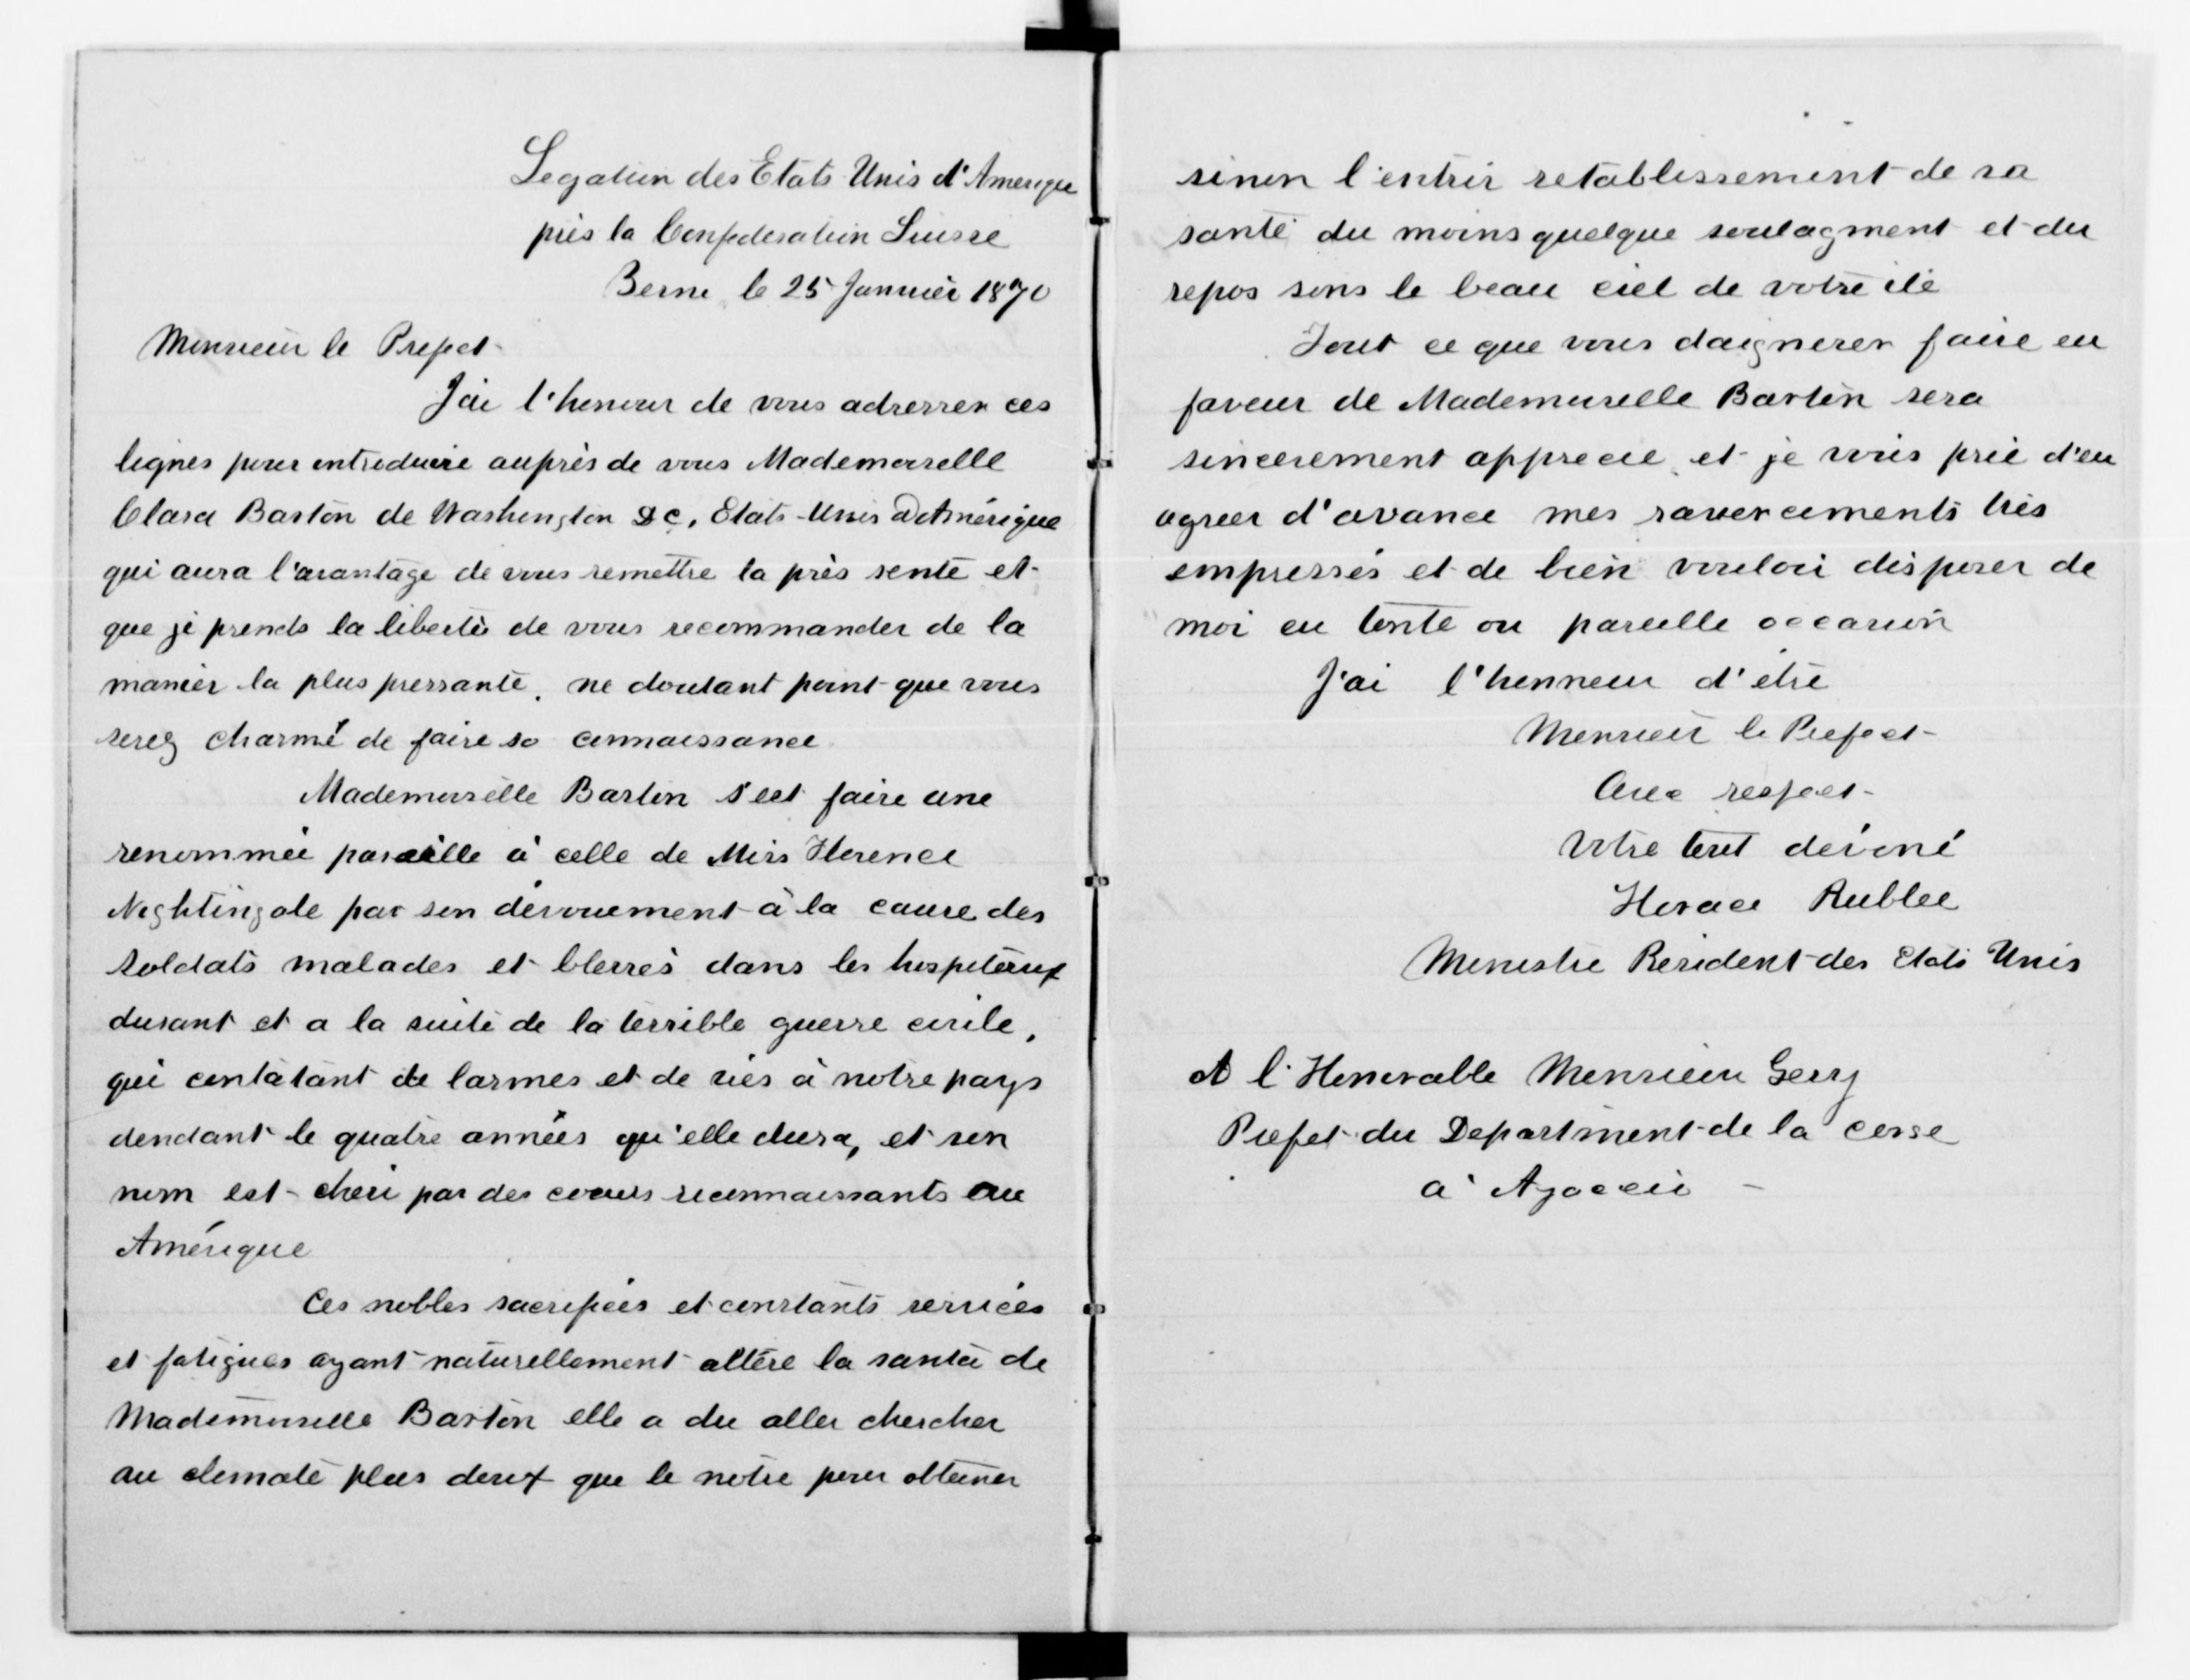 Legation des Etats Unis d'Amerique
près la Confederation Suisse
Berne le 25 Janvier 1870
Monsieur le Prefect
J'ai l'honour de vous adresser ces
lignes pour introduire auprès de vous Mademoiselle
Clara Barton de Washington D C, Etats-Unis d'Amérique
qui aura l'avantage de vous remettre la près sente et
que je prends la liberté de vous recommander de la
manièr la plus pressante. ne doutant point que vous
serez charmé de faire sa connaissance
Mademoiselle Barton s'est faire une
renommée paraille à celle de Miss Florence
Nightingale par son dévouement à la cause des
soldats malades et blessés dans les hospiteaux
durant et a la suite de la terrible guerre civile,
qui contatant de larmes et de vies à notre pays
dendant le quatre années qu'elle dura, et son
nom est cheri par des coeurs reconnaissants
Amérique
Ces nobles sacrifices et constants services
et fatigues ayant naturellement altéré la santé de
Mademoiselle Barton elle a du aller chercher
au climate plus doux que le notre pour obtenir
sinon l'entrir retablissement de sa
santé du moins quelque soulagment et du
repos sons le beau ciel de votre ile
Tout ce que vous daignerer faire en
faveur de Mademoiselle Barton sera
sincerement apprecie et je vous prie d'en
agreer d'avance mes ravercements très
empressés et de bien vouloir disposer de
moi en tonte ou pareille occasion
J'ai l'honneur d'être
Monsieur le Prefect
Avec respect
Votre tout dévoné
Horace Rublee
Ministre Resident des Etats Unis
A l'Honorable Monsieur Gerry
Prefet du Department de la corse
a' Ajaccio -